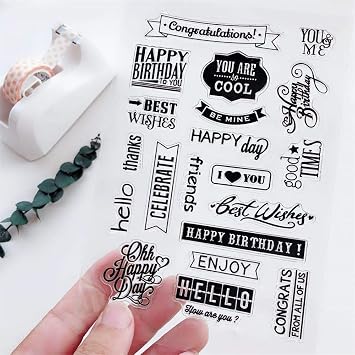 Congratulations!
YOU
&
ME
HAPPY
BIRTHDAY
TO YOU
YOU ARE
so
COOL
BE MINE
Happy
Birthday
BEST
WISHES
HAPPY day
good
TIMES
thanks
hello
CELEBRATE
friends
I ♥ YOU
Best Wishes
HAPPY BIRTHDAY !
ENJOY
Ohh
Happy
Day
HELLO
How are you ?
CONGRATS
FROM ALL OF US